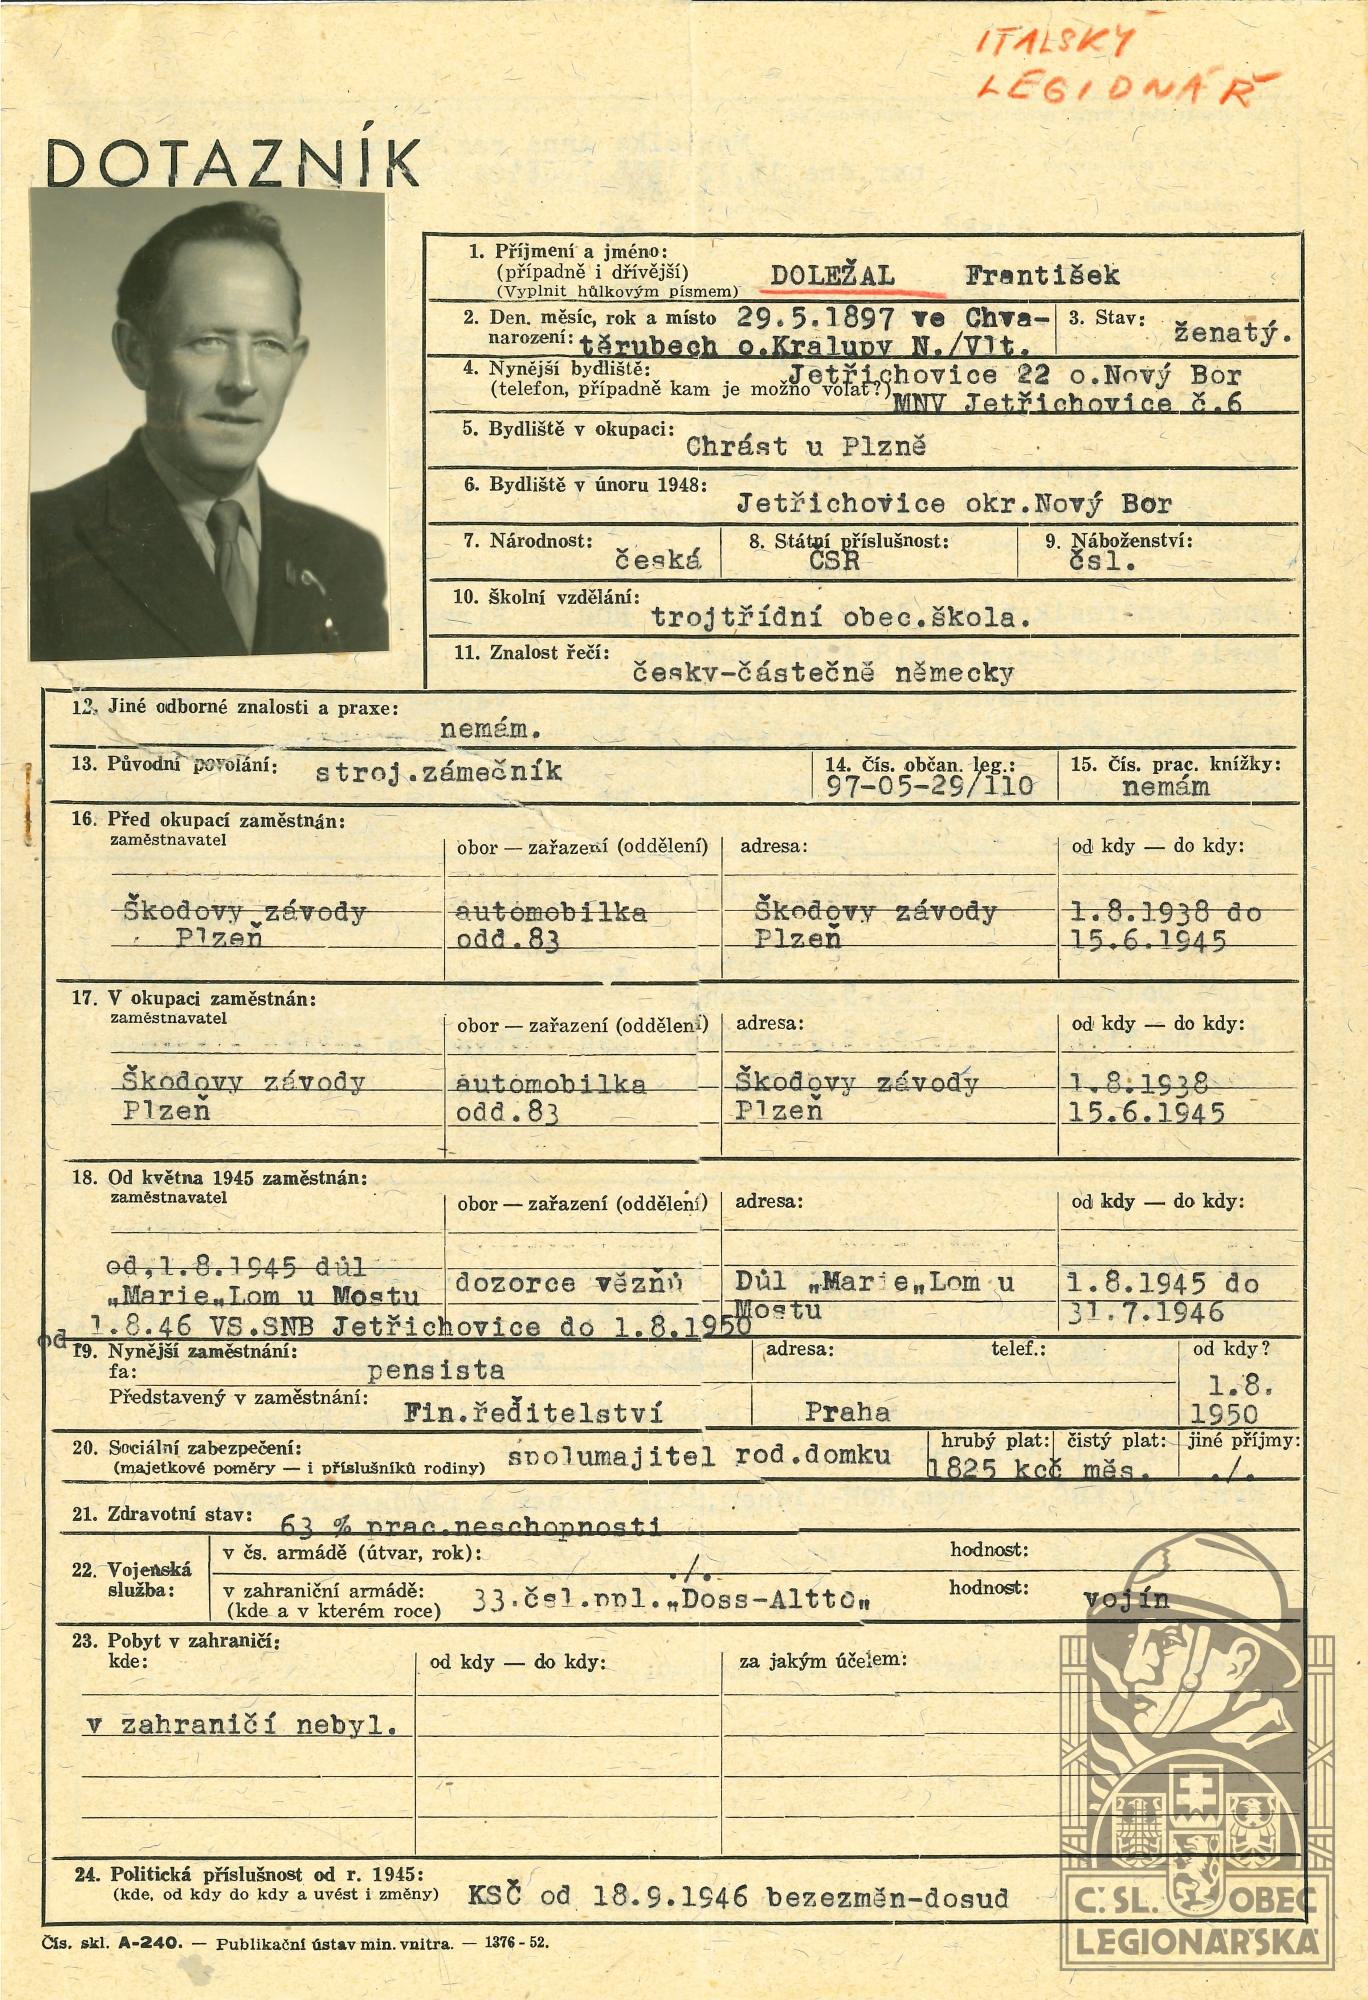 ITALSKÝ
LEGIONÁŘ
DOTAZNÍK
1. Příjmení a jméno:
(případně i dřívější)
(Vyplnit hůlkovým písmem)
DOLEŽAL František
2. Den. měsíc, rok a místo narození: 29.5.1897 ve Chva-
těrubech o.Kralupy N./Vlt.
3. Stav: ženatý.
4. Nynější bydliště: Jetřichovice 22 o.Nový Bor
(telefon, případně kam je možno volat?) MNV Jetřichovice č.6
5. Bydliště v okupaci: Chrást u Plzně
6. Bydliště v únoru 1948: Jetřichovice okr.Nový Bor
7. Národnost: česká
8. Státní příslušnost: ČSR
9. Náboženství: čsl.
10. Školní vzdělání: trojtřídní obec.škola.
11. Znalost řečí: česky-částečně německy
12. Jiné odborné znalosti a praxe: nemám.
13. Původní povolání: stroj.zámečník
14. Čís. občan. leg.: 97-05-29/110
15. Čís. prac. knížky: nemám
16. Před okupací zaměstnán:
zaměstnavatel obor — zařazení (oddělení) adresa: od kdy — do kdy:
Škodovy závody automobilka Škodovy závody 1.8.1938 do
Plzeň odd.83 Plzeň 15.6.1945
17. V okupaci zaměstnán:
zaměstnavatel obor — zařazení (oddělení) adresa: od kdy — do kdy:
Škodovy závody automobilka Škodovy závody 1.8.1938
Plzeň odd.83 Plzeň 15.6.1945
18. Od května 1945 zaměstnán:
zaměstnavatel obor — zařazení (oddělení) adresa: od kdy — do kdy:
od,1.8.1945 důl dozorce vězňů Důl „Marie„Lom u 1.8.1945 do
„Marie„Lom u Mostu Mostu 31.7.1946
od 1.8.46 VS.SNB Jetřichovice do 1.8.1950
19. Nynější zaměstnání: adresa: telef.: od kdy?
fa: pensista 1.8.
Představený v zaměstnání: Fin.ředitelství Praha 1950
20. Sociální zabezpečení: spolumajitel rod.domku hrubý plat: čistý plat: jiné příjmy:
(majetkové poměry — i příslušníků rodiny) 1825 kcč měs. ./.
21. Zdravotní stav: 63 % prac.neschopnosti
22. Vojenská služba:
v čs. armádě (útvar, rok): ./. hodnost:
v zahraniční armádě: 33.čsl.ppl.„Doss-Altto„ hodnost: vojín
(kde a v kterém roce)
23. Pobyt v zahraničí:
kde: od kdy — do kdy: za jakým účelem:
v zahraničí nebyl.
24. Politická příslušnost od r. 1945:
(kde, od kdy do kdy a uvést i změny) KSČ od 18.9.1946 bezezměn-dosud
Čís. skl. A-240. — Publikační ústav min. vnitra. — 1376-52.
Č.SL. OBEC
LEGIONÁŘSKÁ